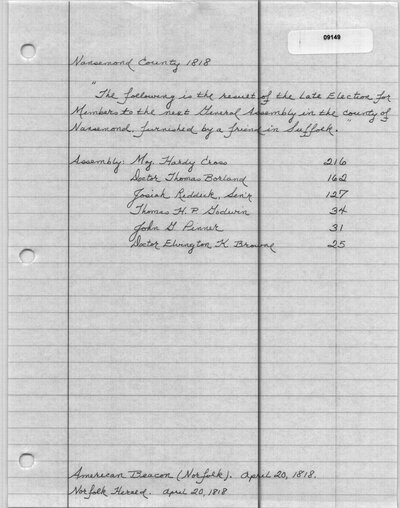 09149
Nansemond County 1818
"The following is the result of the Late Election for
Members to the next General Assembly in the county of
Nansemond, furnished by a friend in Suffolk."
Assembly: Maj. Hardy Cross 216
Doctor Thomas Borland 162
Josiah Reddick, Sen'r 127
Thomas H. P. Godwin 34
John G Pinner 31
Doctor Elvington K. Browne 25
American Beacon (Norfolk). April 20, 1818.
Norfolk Herald. April 20, 1818